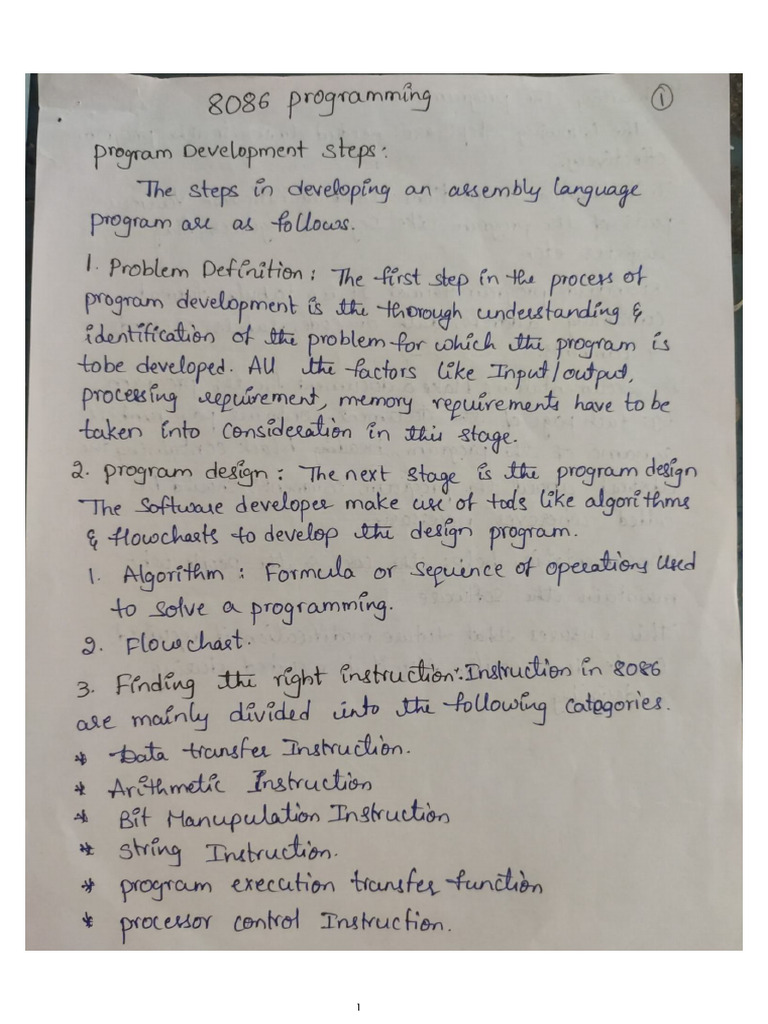 8086 programming
1
program Development steps:
The steps in developing an assembly language
program are as follows.
1. Problem Definition: The first step in the process of
program development is the thorough understanding &
identification of the problem for which the program is
tobe developed. All the factors like Input/output,
processing requirement, memory requirements have to be
taken into consideration in this stage.
2. program design: The next stage is the program design
The software developer make use of tools like algorithms
& flowcharts to develop the design program.
1. Algorithm: Formula or sequence of operations Used
to solve a programming.
2. Flowchart.
3. Finding the right instruction: Instruction in 8086
are mainly divided into the following categories.
* Data transfer Instruction.
* Arithmetic Instruction
* Bit Manupulation Instruction
* string Instruction.
* program execution transfer function
* processor control Instruction.
1